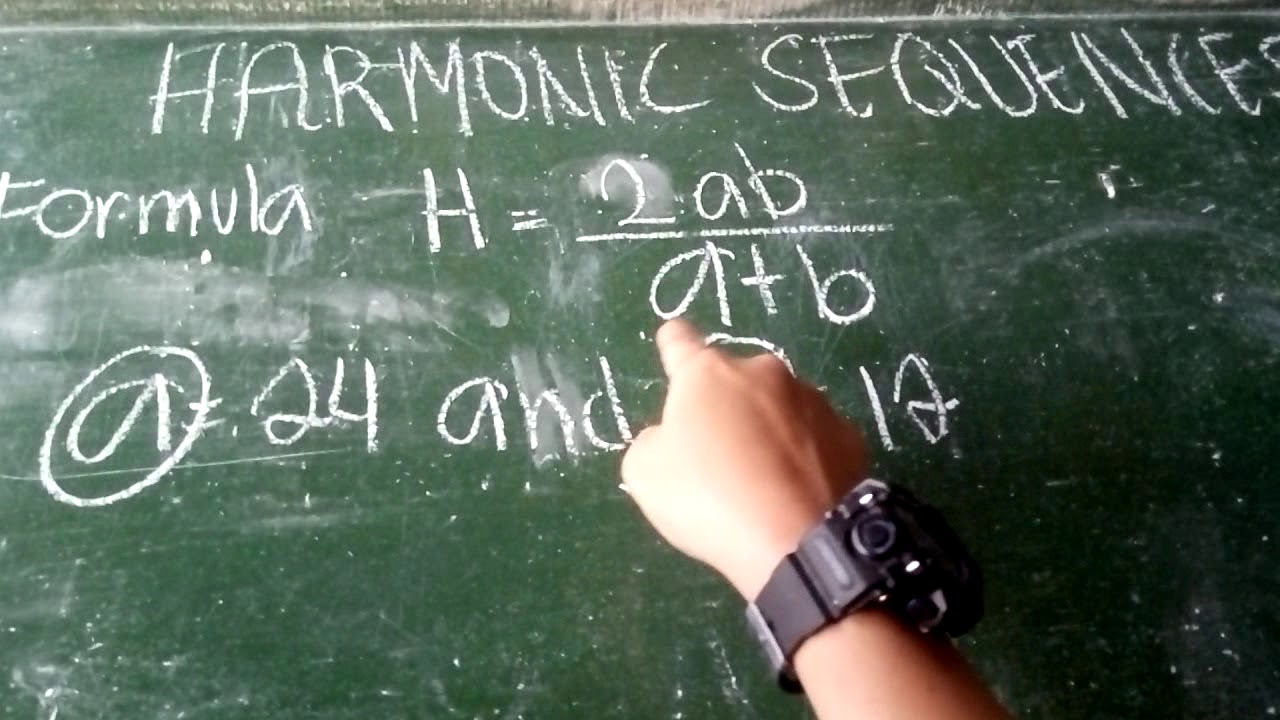 HARMONIC SEQUENCES
Formula H = 2ab
a+b
a= 24 and 12